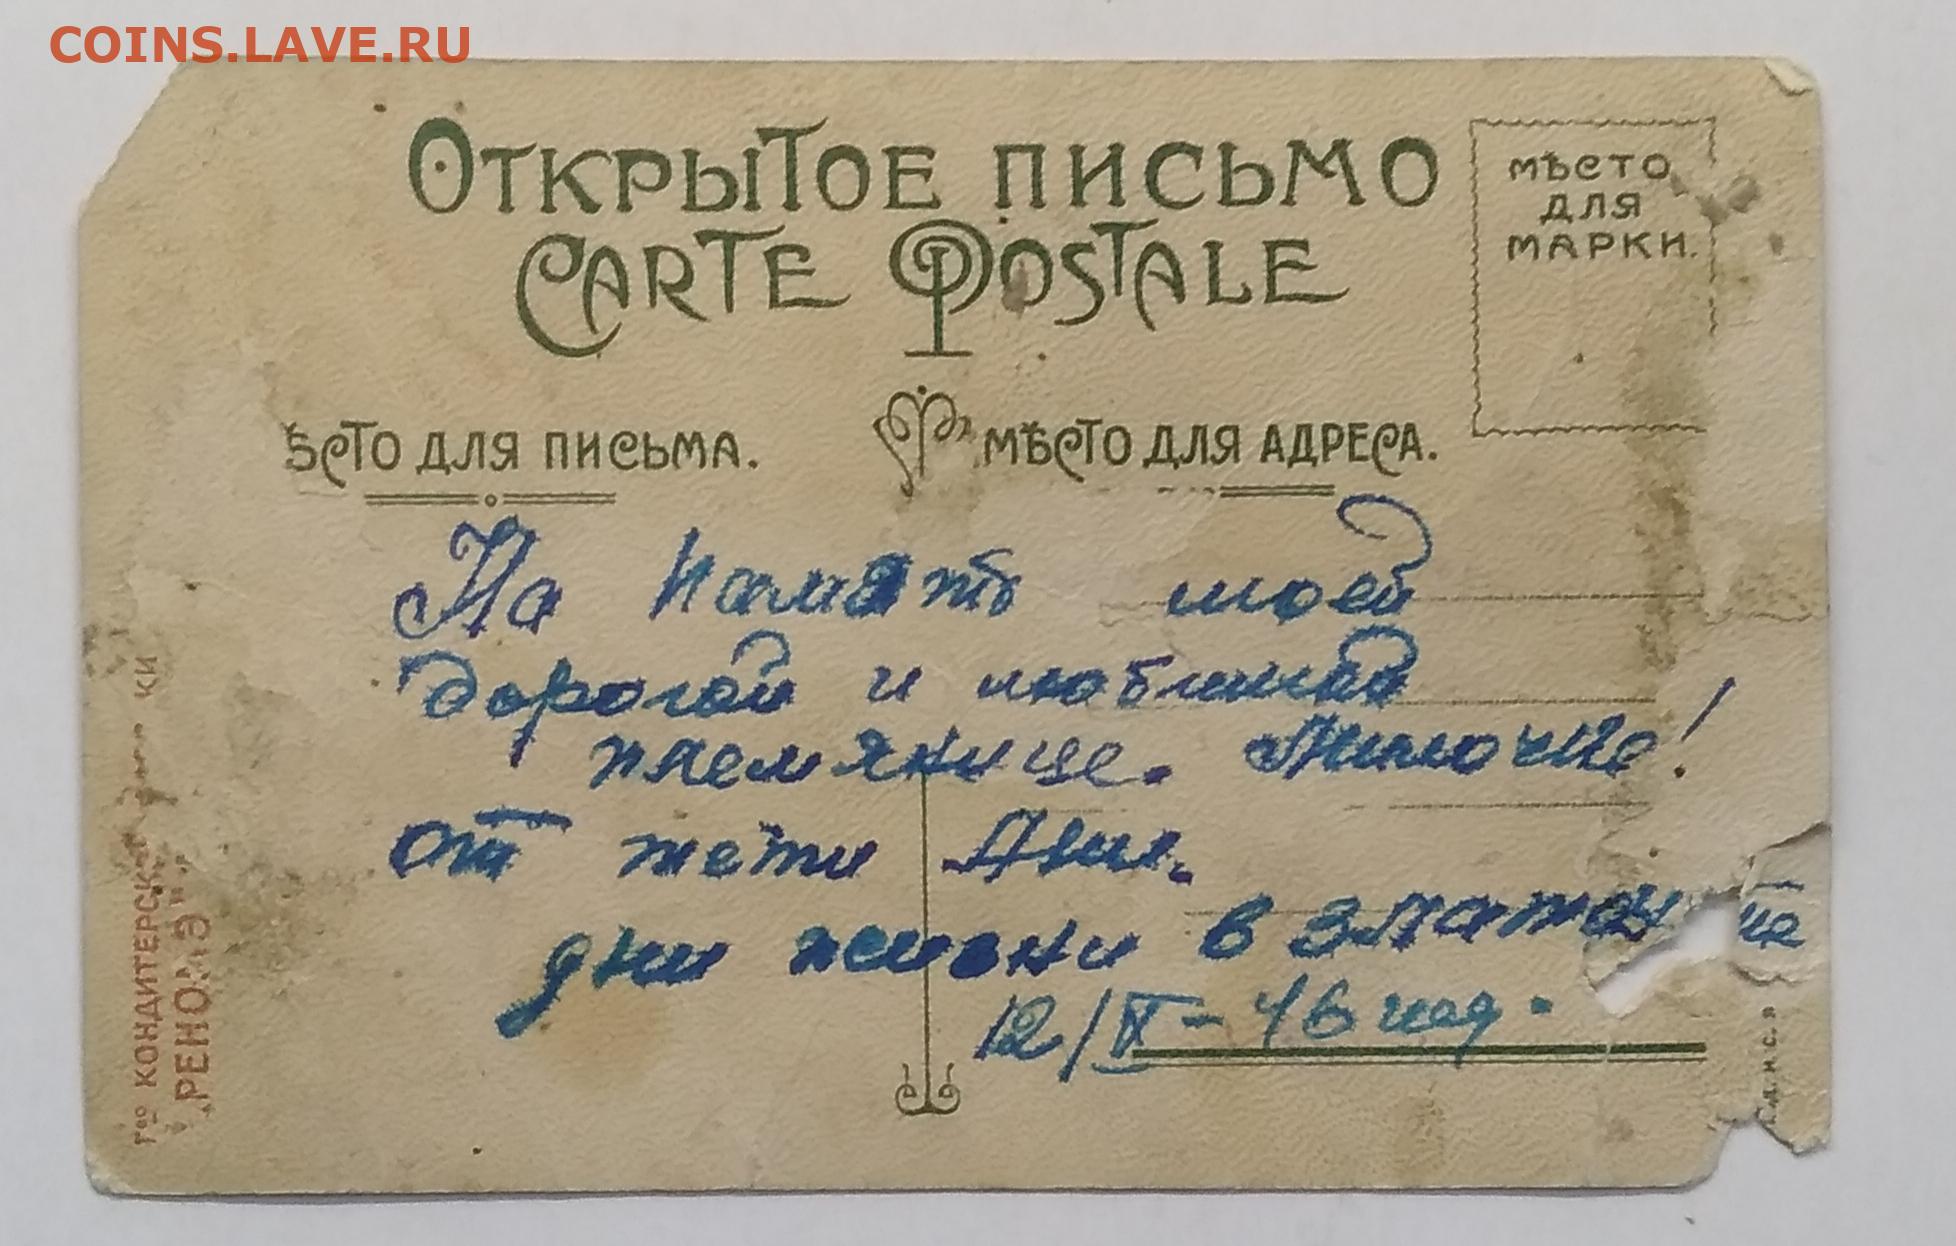 COINS.LAVE.RU
ОТКРЫТОЕ ПИСЬМО
CARTE POSTALE
МѢСТО
ДЛЯ
МАРКИ.
ѢСТО ДЛЯ ПИСЬМА.
МѢСТО ДЛЯ АДРЕСА.
На память моей
дорогой и любимой
племянице. Лилочке!
от тети Ани.
дни жизни в Златоу те
12/V-46 год.
Гво КОНДИТЕРСК КИ
„РЕНОМЭ"